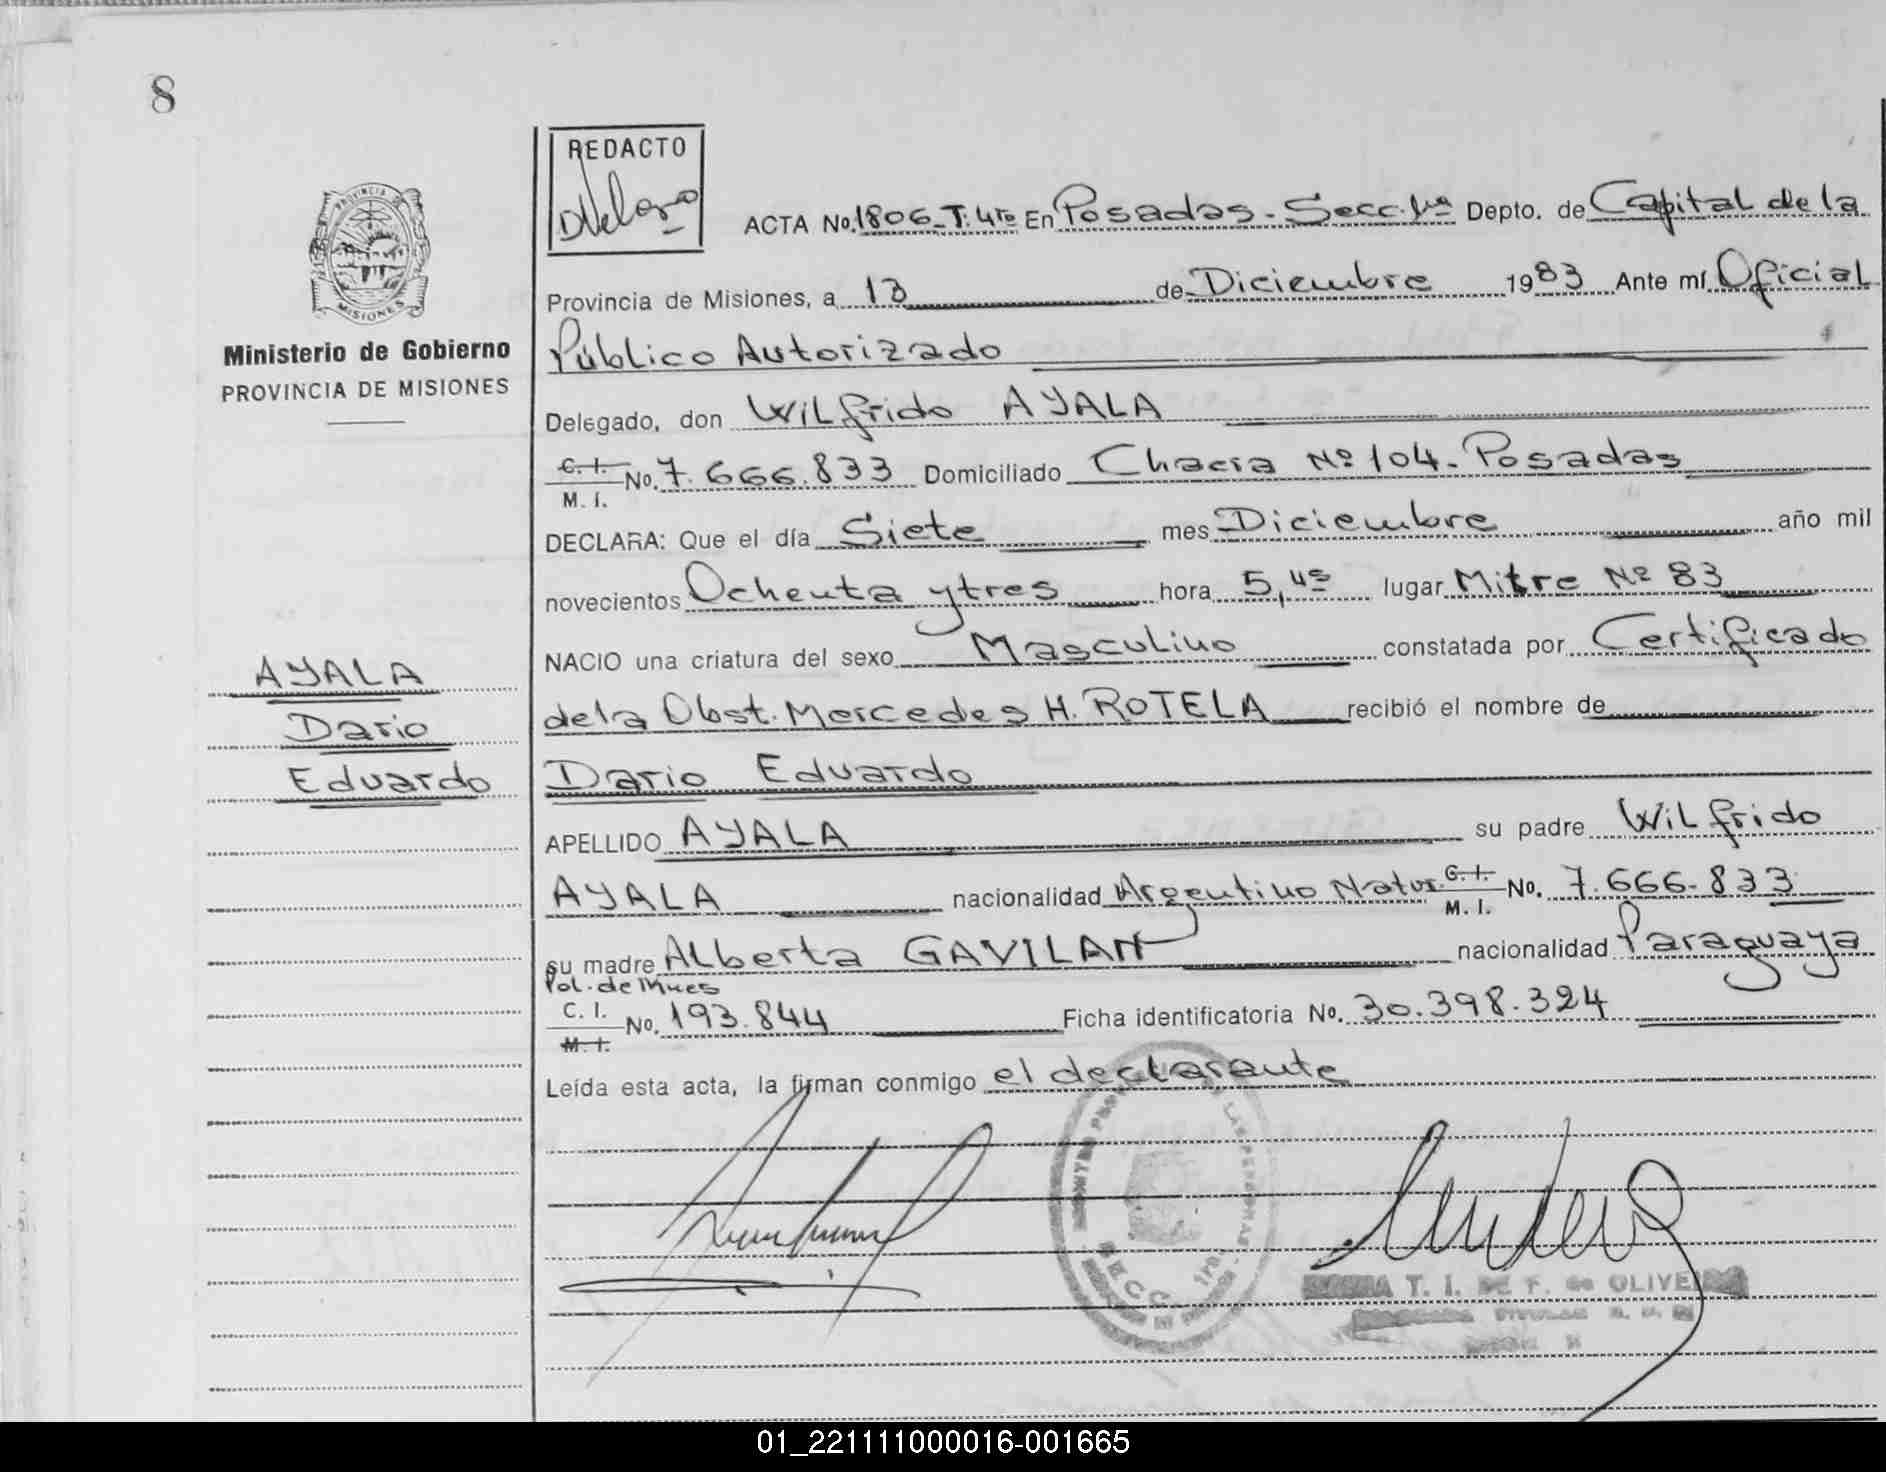 8
REDACTO
PROVINCIA DE
MISIONES
Ministerio de Gobierno
PROVINCIA DE MISIONES
AYALA
Dario
Eduardo
ACTA No. 1806-T: 4to En Posadas - Secc. 1ra Depto. de Capital de la
Provincia de Misiones, a 13 de Diciembre 1983 Ante mí Oficial
Público Autorizado
Delegado, don Wilfrido AYALA
C. I.
M. I. No. 7.666.833 Domiciliado Chacra Nº 104- Posadas
DECLARA: Que el día Siete mes Diciembre año mil
novecientos Ochenta y tres hora 5,45 lugar Mitre Nº 83
NACIO una criatura del sexo Masculino constatada por Certificado
de la Obst. Mercedes H. ROTELA recibió el nombre de
Dario Eduardo
APELLIDO AYALA su padre Wilfrido
AYALA nacionalidad Argentino Natur. C. I. M. I. No. 7.666.833
su madre Alberta GAVILAN nacionalidad Paraguaya
Pol. de Mnes
C. I.
M. I. No. 193.844 Ficha identificatoria No. 30.398.324
Leída esta acta, la firman conmigo el declarante
LAS PERSONAS
SECC. 1ra
T. I. DE F. de OLIVEIRA
01_221111000016-001665